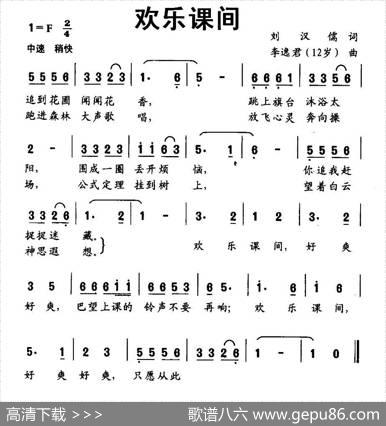 欢乐课间
1=F 2/4
中速 稍快
刘汉儒 词
李逸君(12岁) 曲
5555 3323 | 1· 6 | 5 - | 6661 5553 |
追到花圃 闻闻花 香, 跳上旗台 沐浴太
跑进森林 大声歌 唱, 放飞心灵 奔向操
2 - | 3323 1163 | 5· 1 | 6 - | 5555
阳, 围成一圈 丢开烦 恼, 你追我赶
场, 公式定理 挂到树 上, 望着白云
3326 | 1· 2 | 1 - | 3· 2 | 1 2 | 3· 2
捉捉迷 藏。
神思遐 想。
欢 乐 课 间, 好 爽
3 5 | 6611 | 5653 | 65· | 6· 1 | 3 6
好 爽, 巴望上课的 铃声不要 再响; 欢 乐 课 间,
5· 1 | 2 3 | 5556 | 3326 | 1 - | 1 0
好 爽 好 爽, 只愿从此
高清下载 >>>
歌谱八六 www.gepu86.com